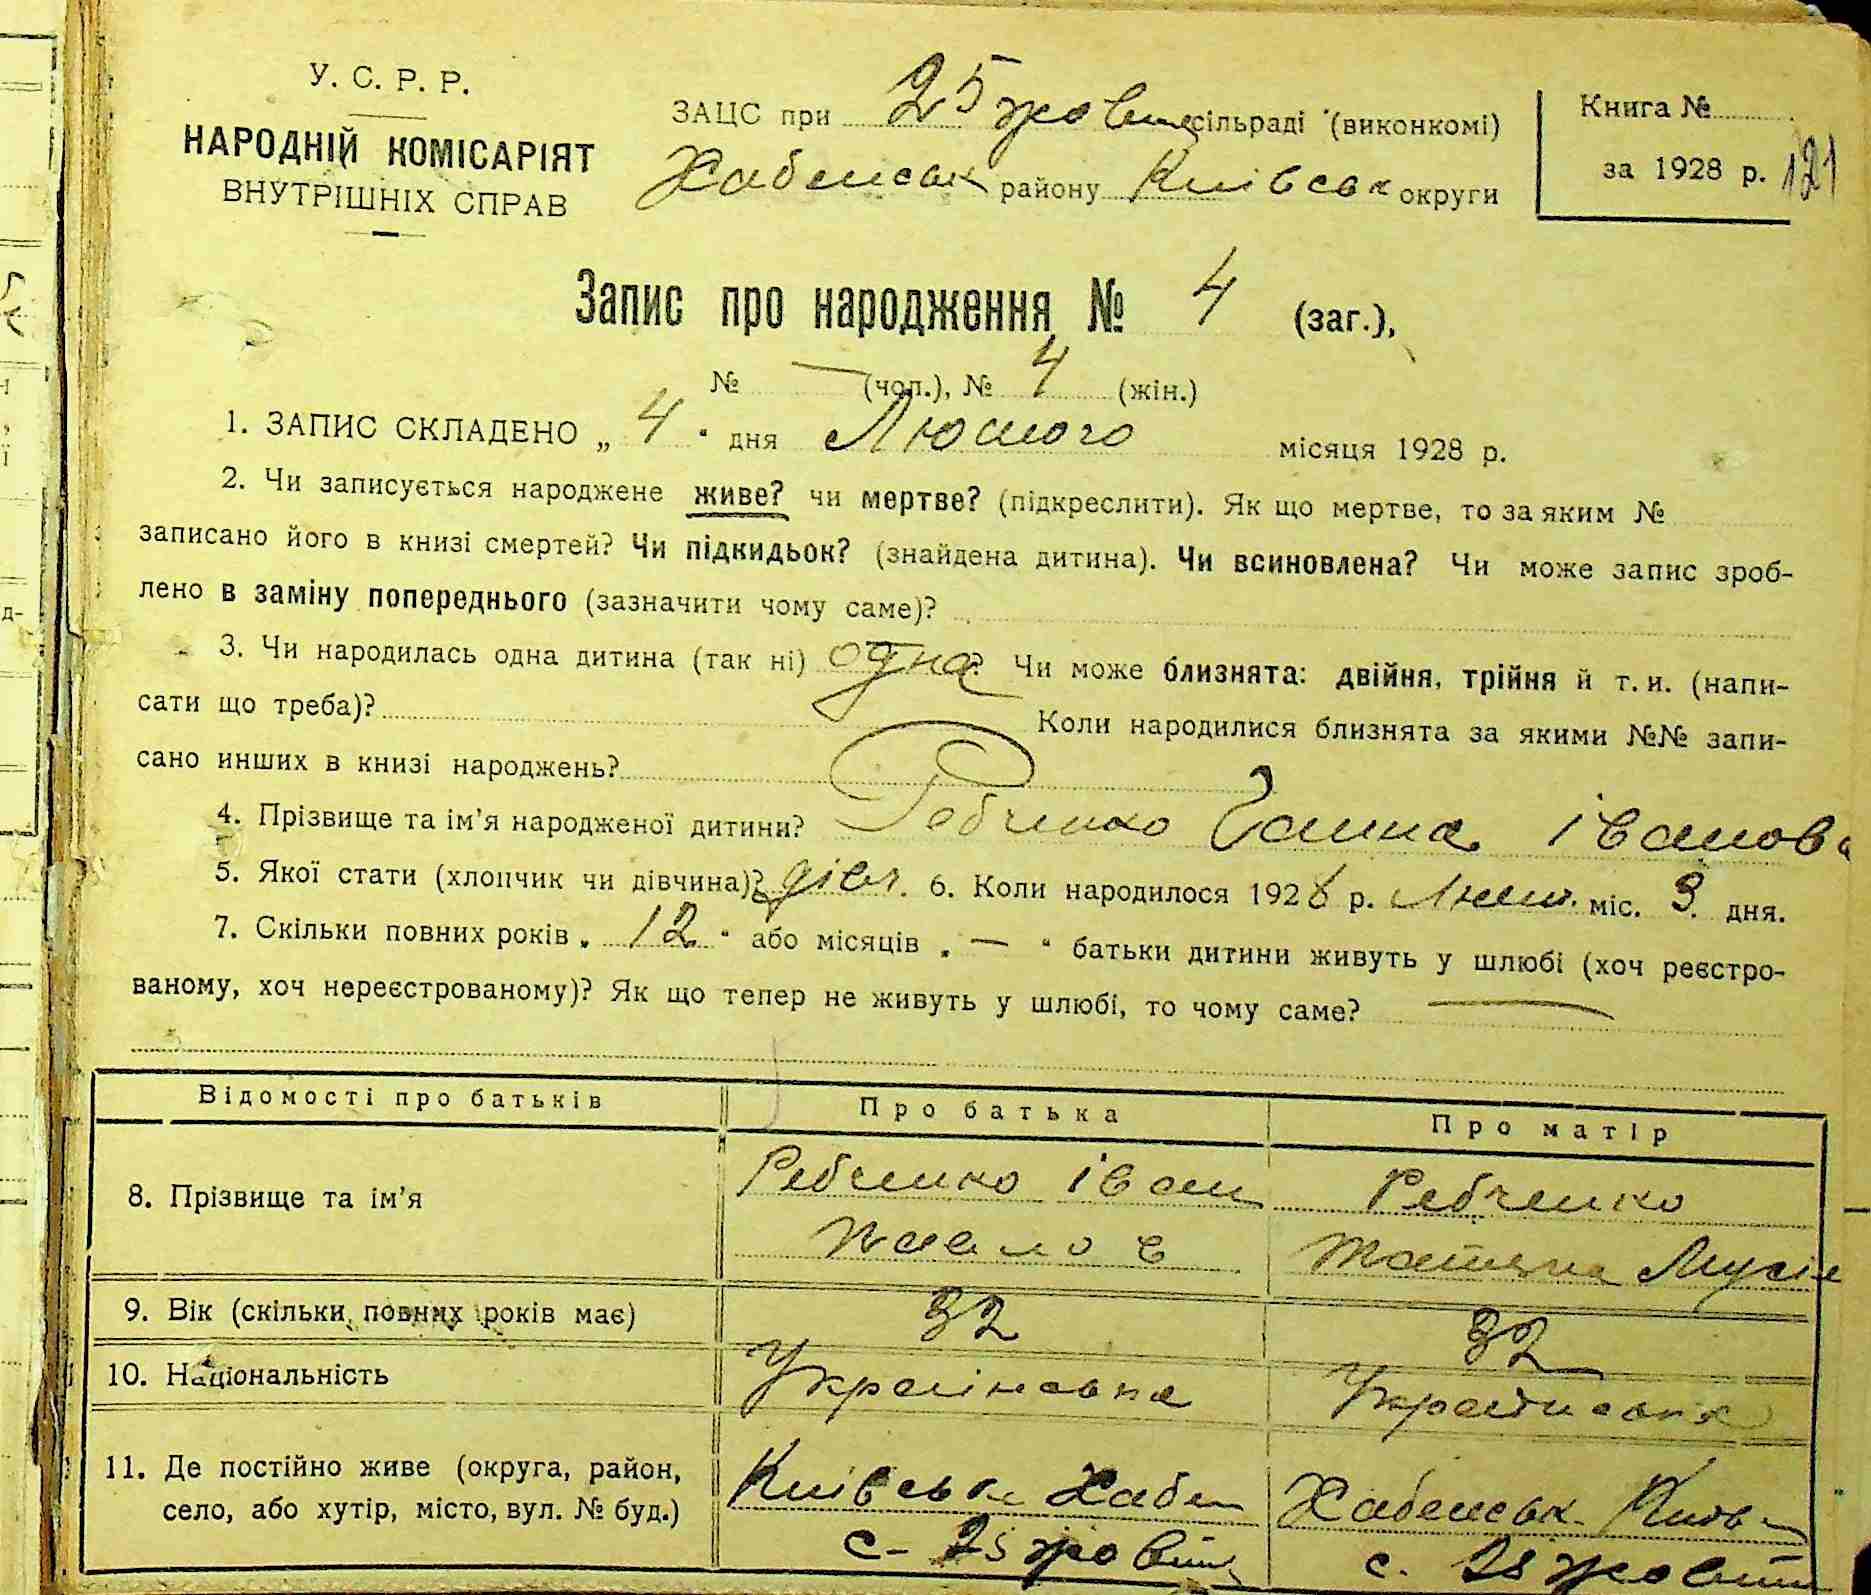 У. С. Р. Р.
НАРОДНІЙ КОМІСАРІЯТ
ВНУТРІШНІХ СПРАВ
ЗАЦС при 25 жовтн сільраді (виконкомі)
Хабенськ району Київськ округи
Книга №
за 1928 р. 121
Запис про народження № 4 (заг.),
№ — (чол.), № 4 (жін.)
1. ЗАПИС СКЛАДЕНО „ 4 " дня Лютого місяця 1928 р.
2. Чи записується народжене живе? чи мертве? (підкреслити). Як що мертве, то за яким №
записано його в книзі смертей? Чи підкидьок? (знайдена дитина). Чи всиновлена? Чи може запис зроб-
лено в заміну попереднього (зазначити чому саме)?
3. Чи народилась одна дитина (так ні) одна? Чи може близнята: двійня, трійня й т. и. (напи-
сати що треба)? Коли народилися близнята за якими №№ запи-
сано инших в книзі народжень?
4. Прізвище та ім'я народженої дитини? Ребченко Ганна Іванова
5. Якої стати (хлопчик чи дівчина)? дівч. 6. Коли народилося 1928 р. Лют. міс. 3 дня.
7. Скільки повних років „ 12 " або місяців „ — " батьки дитини живуть у шлюбі (хоч реєстро-
ваному, хоч нереєстрованому)? Як що тепер не живуть у шлюбі, то чому саме? —
Відомості про батьків Про батька Про матір
8. Прізвище та ім'я Ребченко Іван Ребченко
Павлов Татяна Мусі
9. Вік (скільки повних років має) 32 32
10. Національність Українська Українська
11. Де постійно живе (округа, район, Київськ Хабен Хабенськ Київ
село, або хутір, місто, вул. № буд.) с. 25 жовтн с. 25 жовтн